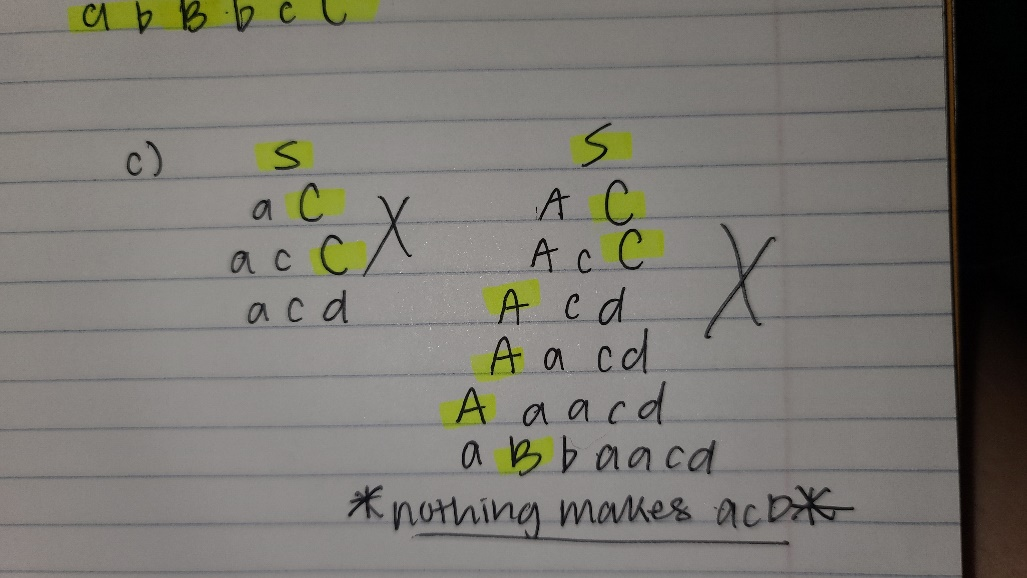 a b B b c C
c) S S
a C A C
a c C X A c C X
a c d A c d
A a cd
A a a c d
a B b a a c d
*nothing makes acD*